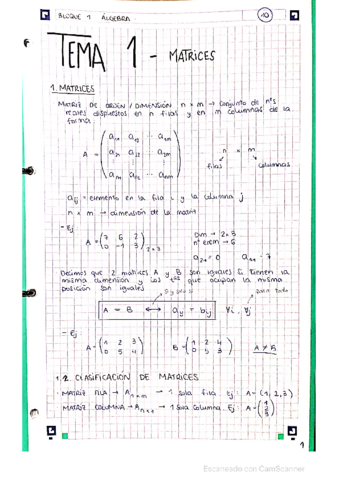 BLOQUE 1 ÁLGEBRA
TEMA 1 - MATRICES
1. MATRICES
MATRIZ DE ORDEN / DIMENSIÓN n × m → conjunto de nºs
reales dispuestos en n filas y en m columnas de la
forma:
A =
n × m
filas columnas
aij = elemento en la fila i y la columna j
n × m → dimensión de la matriz
- Ej
A = (7 6 2
0 -1 3) 2×3
Dim → 2×3
nº elem → 6
Decimos que 2 matrices A y B son iguales si tienen la
misma dimensión y los que ocupan la misma
posición son iguales
A = B ⟷ aij = bij ∀i, ∀j
- Ej
A = (1 2 3
0 5 4)
B = (1 2 4
0 5 3)
A ≠ B
CLASIFICACIÓN DE MATRICES
MATRIZ FILA → 1 sola fila Ej: A = (1, 2, 3)
MATRIZ COLUMNA → 1 sola columna. Ej: A = (1
2
3)
1
Escaneado con CamScanner